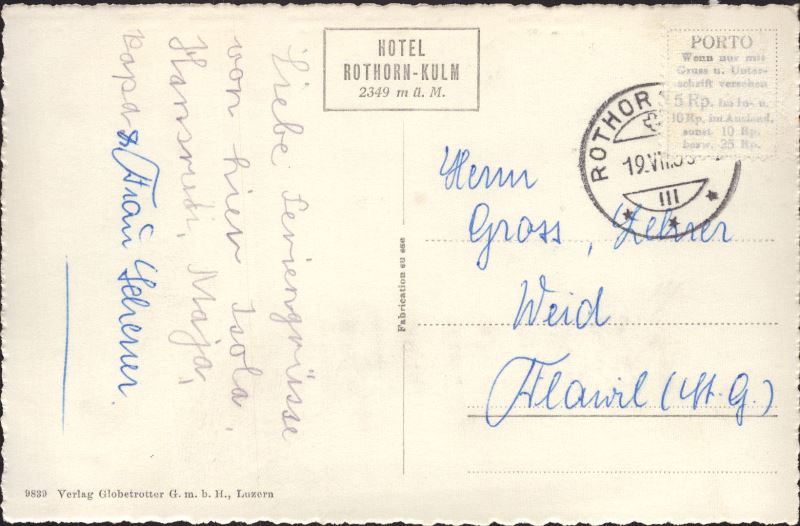 HOTEL
ROTHORN-KULM
2349 m ü. M.
PORTO
Wenn nur mit
Gruss u. Unter-
schrift versehen
5 Rp. im In- u.
10 Rp. im Ausland,
sonst 10 Rp.
bezw. 25 Rp.
ROTHOR
19.VII.
III
Liebe Feriengrüsse
von hier Isola,
Hansruedi, Maja,
Papa
& Frau Scherrer.
Herrn
Gross, Lehrer
Weid
Flawil (St. G.)
Fabrication su sse
9839 Verlag Globetrotter G. m. b. H., Luzern